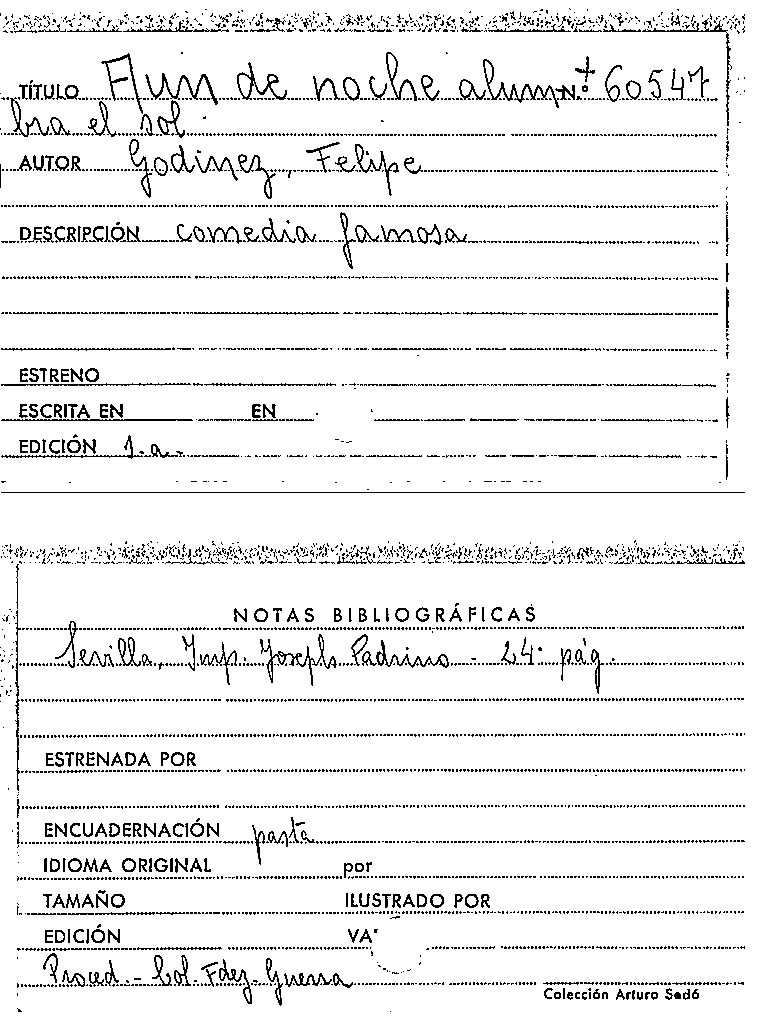 TÍTULO Aun de noche alum N.º + 60547
bra el sol.
AUTOR Godinez, Felipe
DESCRIPCIÓN comedia famosa
ESTRENO
ESCRITA EN EN
EDICIÓN 1.a.
NOTAS BIBLIOGRÁFICAS
Sevilla, Imp. Joseph Padrino - 24 pág.
ESTRENADA POR
ENCUADERNACIÓN pasta
IDIOMA ORIGINAL por
TAMAÑO ILUSTRADO POR
EDICIÓN
Proced. - Col. Fdez-Guerra
Colección Arturo Sedó